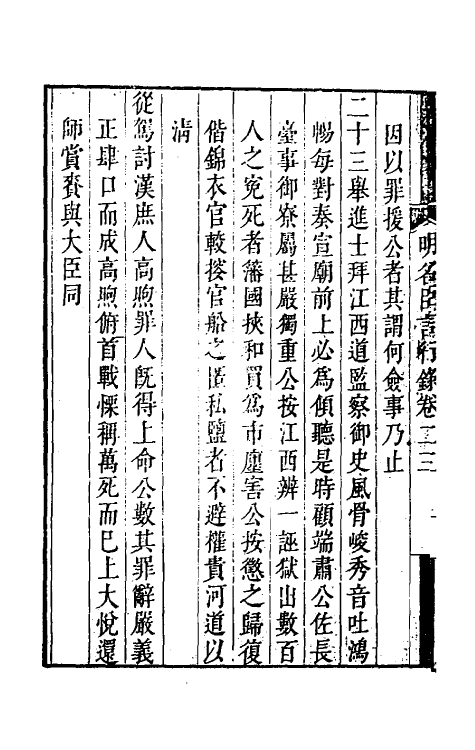 明名臣言行錄卷二三
因以罪援公者其謂何僉事乃止
二十三舉進士拜江西道監察御史風骨峻秀音吐鴻
暢每對奏宣廟前上必爲傾聽是時顧端肅公佐長
臺事御寮屬甚嚴獨重公按江西辨一誣獄出數百
人之寃死者藩國挾和買爲市廛害公按懲之歸復
偕錦衣官較搜官船之匿私鹽者不避權貴河道以
清
從駕討漢庶人高煦罪人旣得上命公數其罪辭嚴義
正肆口而成高煦俯首戰慄稱萬死而已上大悅還
師賞賚與大臣同